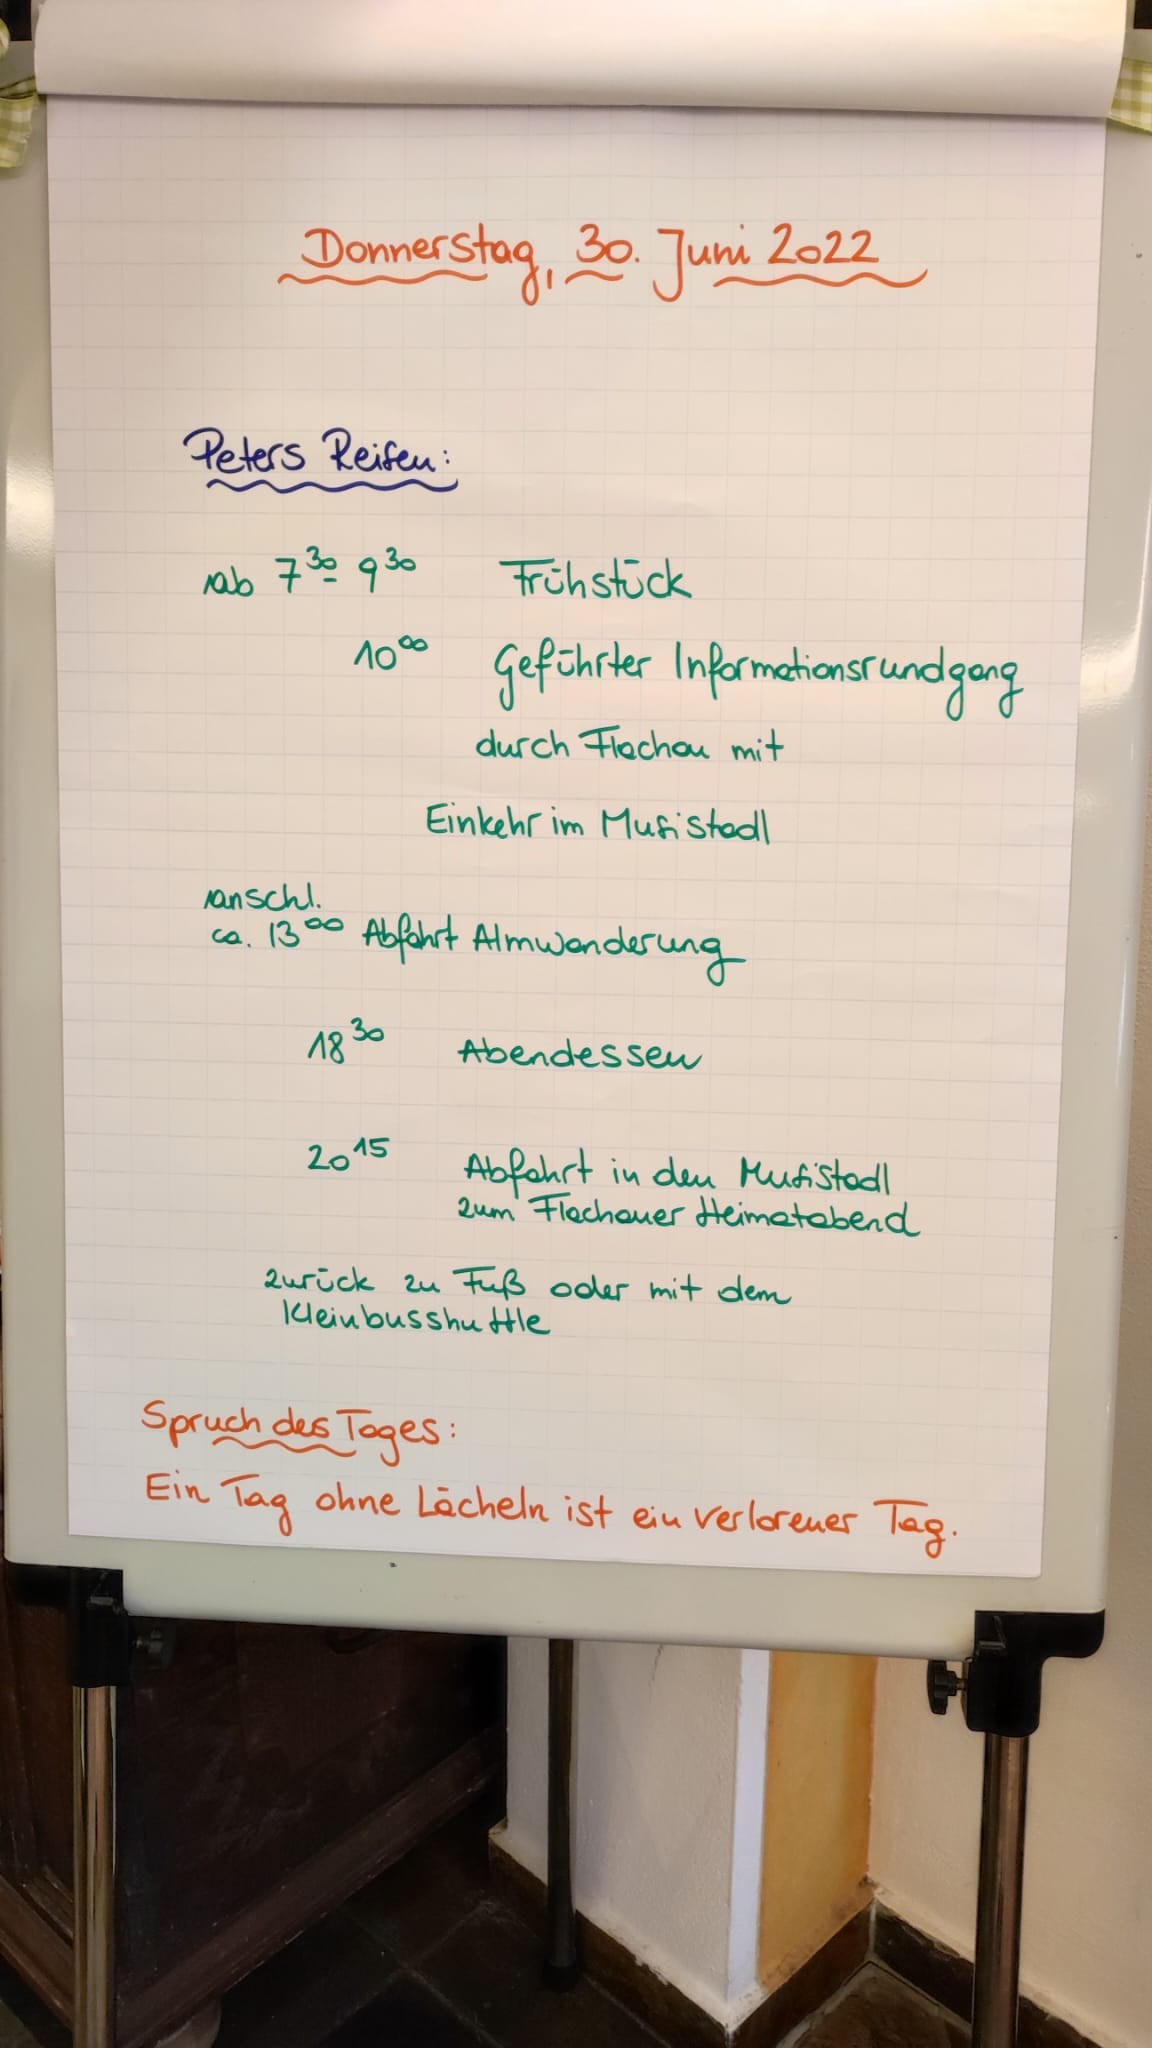 Donnerstag, 30. Juni 2022
Peters Reisen:
ab 7³⁰- 9³⁰ Frühstück
10⁰⁰ Geführter Informationsrundgang
durch Flachau mit
Einkehr im Musistadl
anschl.
ca. 13⁰⁰ Abfahrt Almwanderung
18³⁰ Abendessen
20¹⁵ Abfahrt in den Musistadl
zum Flachauer Heimatabend
zurück zu Fuß oder mit dem
Kleinbusshuttle
Spruch des Tages:
Ein Tag ohne Lächeln ist ein verlorener Tag.